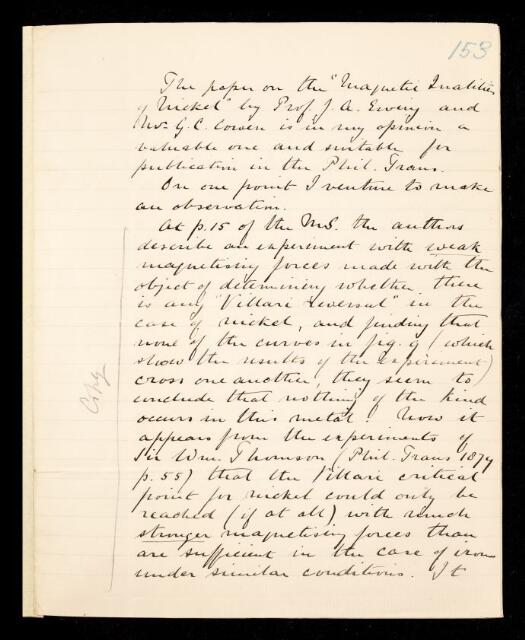 153
The paper on the "Magnetic Qualities
of Nickel" by Prof. J. A. Ewing and
Mr. G. C. Cowan is in my opinion a
valuable one and suitable for
publication in the Phil. Trans.
On one point I venture to make
an observation.
At p. 15 of the M.S. the authors
describe an experiment with weak
magnetising forces made with the
object of determining whether there
is any "Villari reversal" in the
case of nickel, and finding that
none of the curves in fig. 9 (which
show the results of the experiment)
cross one another, they seem to
conclude that nothing of the kind
occurs in this metal. Now it
appears from the experiments of
Sir Wm. Thomson (Phil. Trans 1879
p. 55) that the Villari critical
point for nickel could only be
reached (if at all) with much
stronger magnetising forces than
are sufficient in the case of iron
under similar conditions. It
Copy